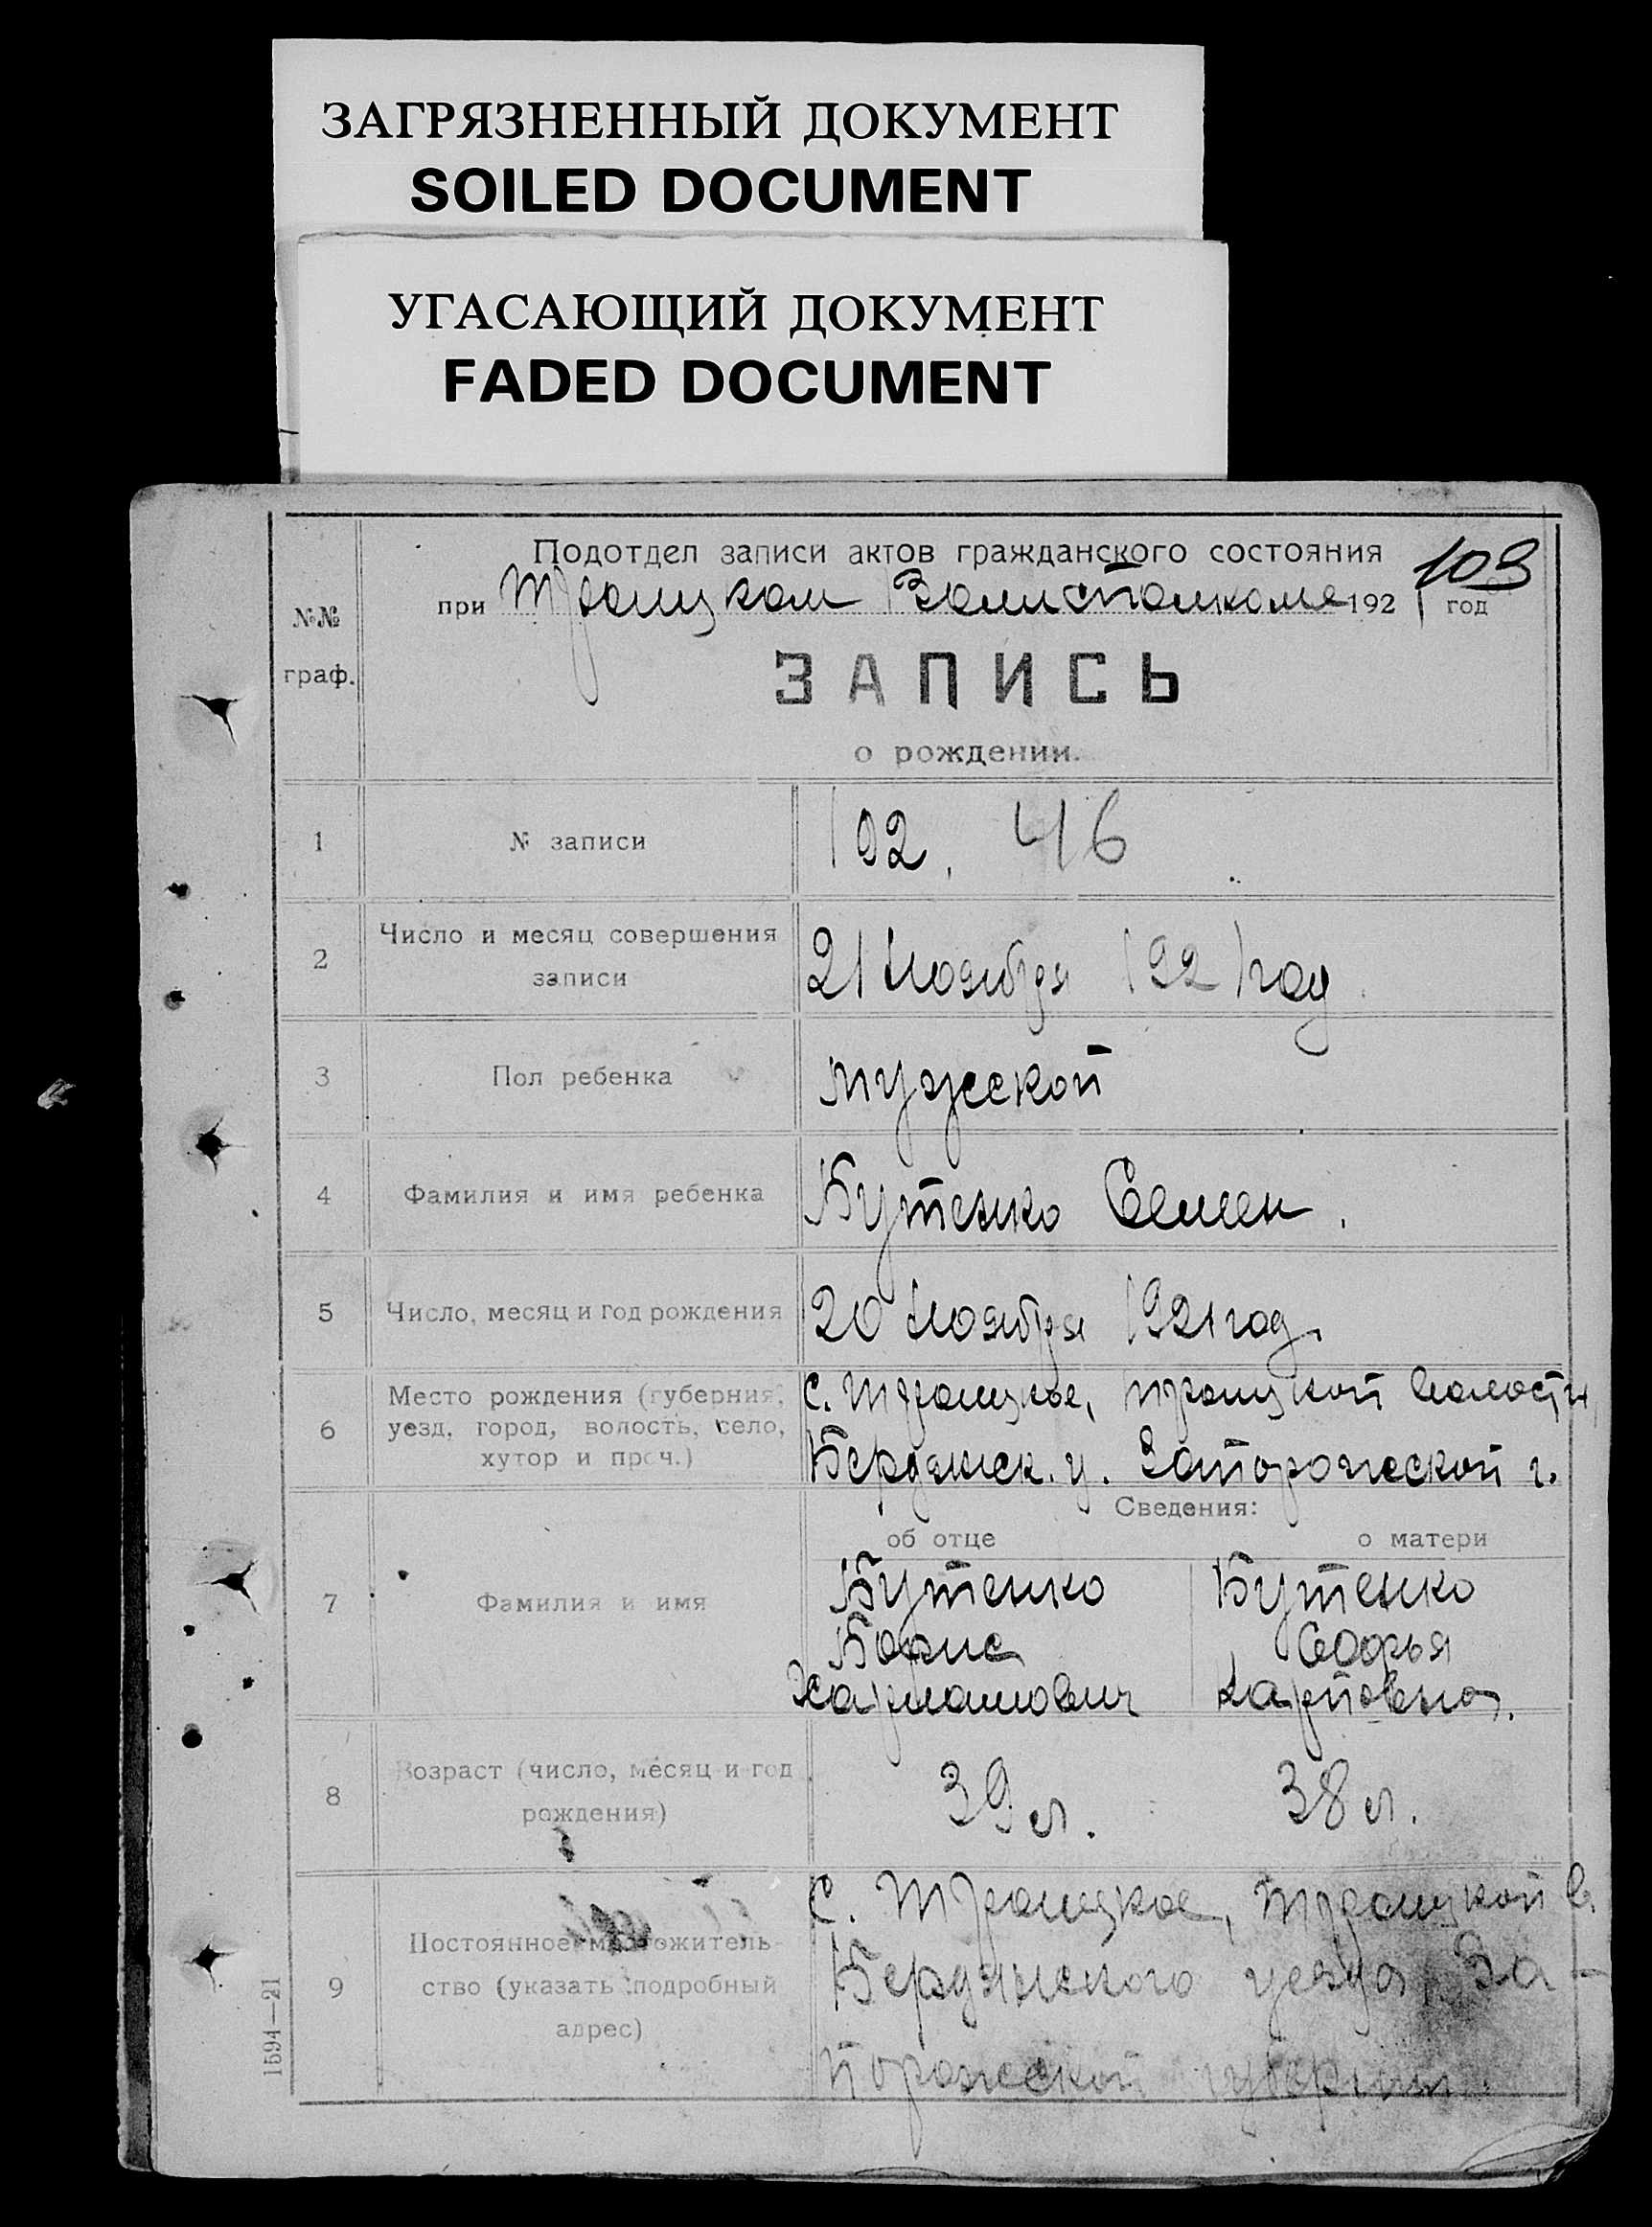 ЗАГРЯЗНЕННЫЙ ДОКУМЕНТ
SOILED DOCUMENT
УГАСАЮЩИЙ ДОКУМЕНТ
FADED DOCUMENT
Подотдел записи актов гражданского состояния
109
при Троицком Волисполкоме 1921 год
№№ граф.
ЗАПИСЬ
о рождении.
1 № записи 102. 46
2 Число и месяц совершения
записи
21 Ноября 1921 год
3 Пол ребенка мужской
4 Фамилия и имя ребенка Бутенко Семен.
5 Число, месяц и год рождения 20 Ноября 1921 год.
6 Место рождения (губерния,
уезд, город, волость, село,
хутор и проч.)
с. Троицкое, Троицкой волости,
Бердянск. у. Запорожской г.
Сведения:
об отце о матери
7 Фамилия и имя
Бутенко Бутенко
Борис Софья
Карповна.
8 Возраст (число, месяц и год
рождения)
39 л. 38 л.
9 Постоянное местожитель-
ство (указать подробный
адрес)
с. Троицкое, Троицкой в.
Бердянского уезда, За-
порожской губернии.
1594—21